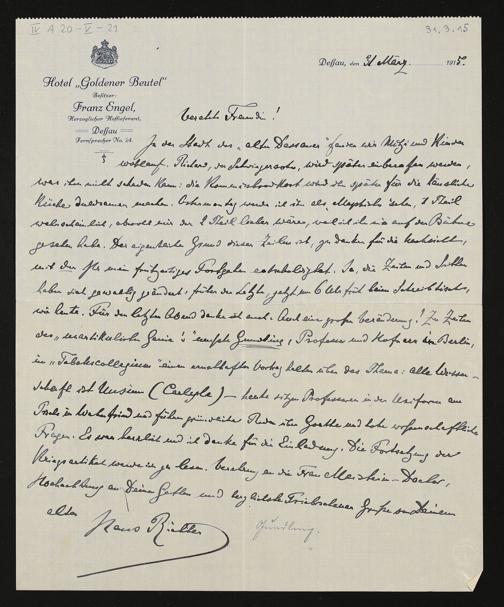 IV A 20-V-21
31.3.15
Hotel „Goldener Beutel"
Besitzer:
Franz Engel,
Herzoglicher Hoflieferant,
Dessau
Fernsprecher No. 24.
Dessau, den 31 März 1915.
Verehrte Freundin!
In der Stadt des „alten Dessauer" fanden wir
wohlauf. Richard, der Schwiegersohn, wird später einberufen werden,
was ihm nicht schaden kann: die wird ihm später für die häusliche
Küche machen. werde ich ihn als sehen, 1 Theil
wahrscheinlich, obwohl mir der 2 Theil lieber wäre, weil ich ihn nie auf der Bühne
gesehen habe. Der eigentliche Grund dieser Zeilen ist, zu danken für die
mit der Ihr mein frühzeitiges Fortgehen entschuldigtet. Ja, die Zeiten und Sitten
haben sich gewaltig geändert, früher der Letzte, jetzt um 6 Uhr früh beim Schreibtisch,
wie heute. Für den letzten Abend danke ich auch. Auch eine große Veränderung! Zu Zeiten
des „ Genie's" mußte Gundling, Professor und Hofnarr in Berlin,
im „Tabakscollegium" einen ernsthaften Vortrag halten über das Thema: alle Wissen-
schaft ist Unsinn (Carlyle) – heute sitzen Professoren in der Uniform am
Tisch in Wahnfried und führen Reden über Goethe und hohe wissenschaftliche
Fragen. Es war herrlich und ich danke für die Einladung. Die Fortsetzung der
Kriegsartikel werde ich lesen. Verehrung an die Frau
Hochachtung an Deinen Gatten und herzlichste Triebschener Grüße von Deinem
alten Hans Richter
Gundling.